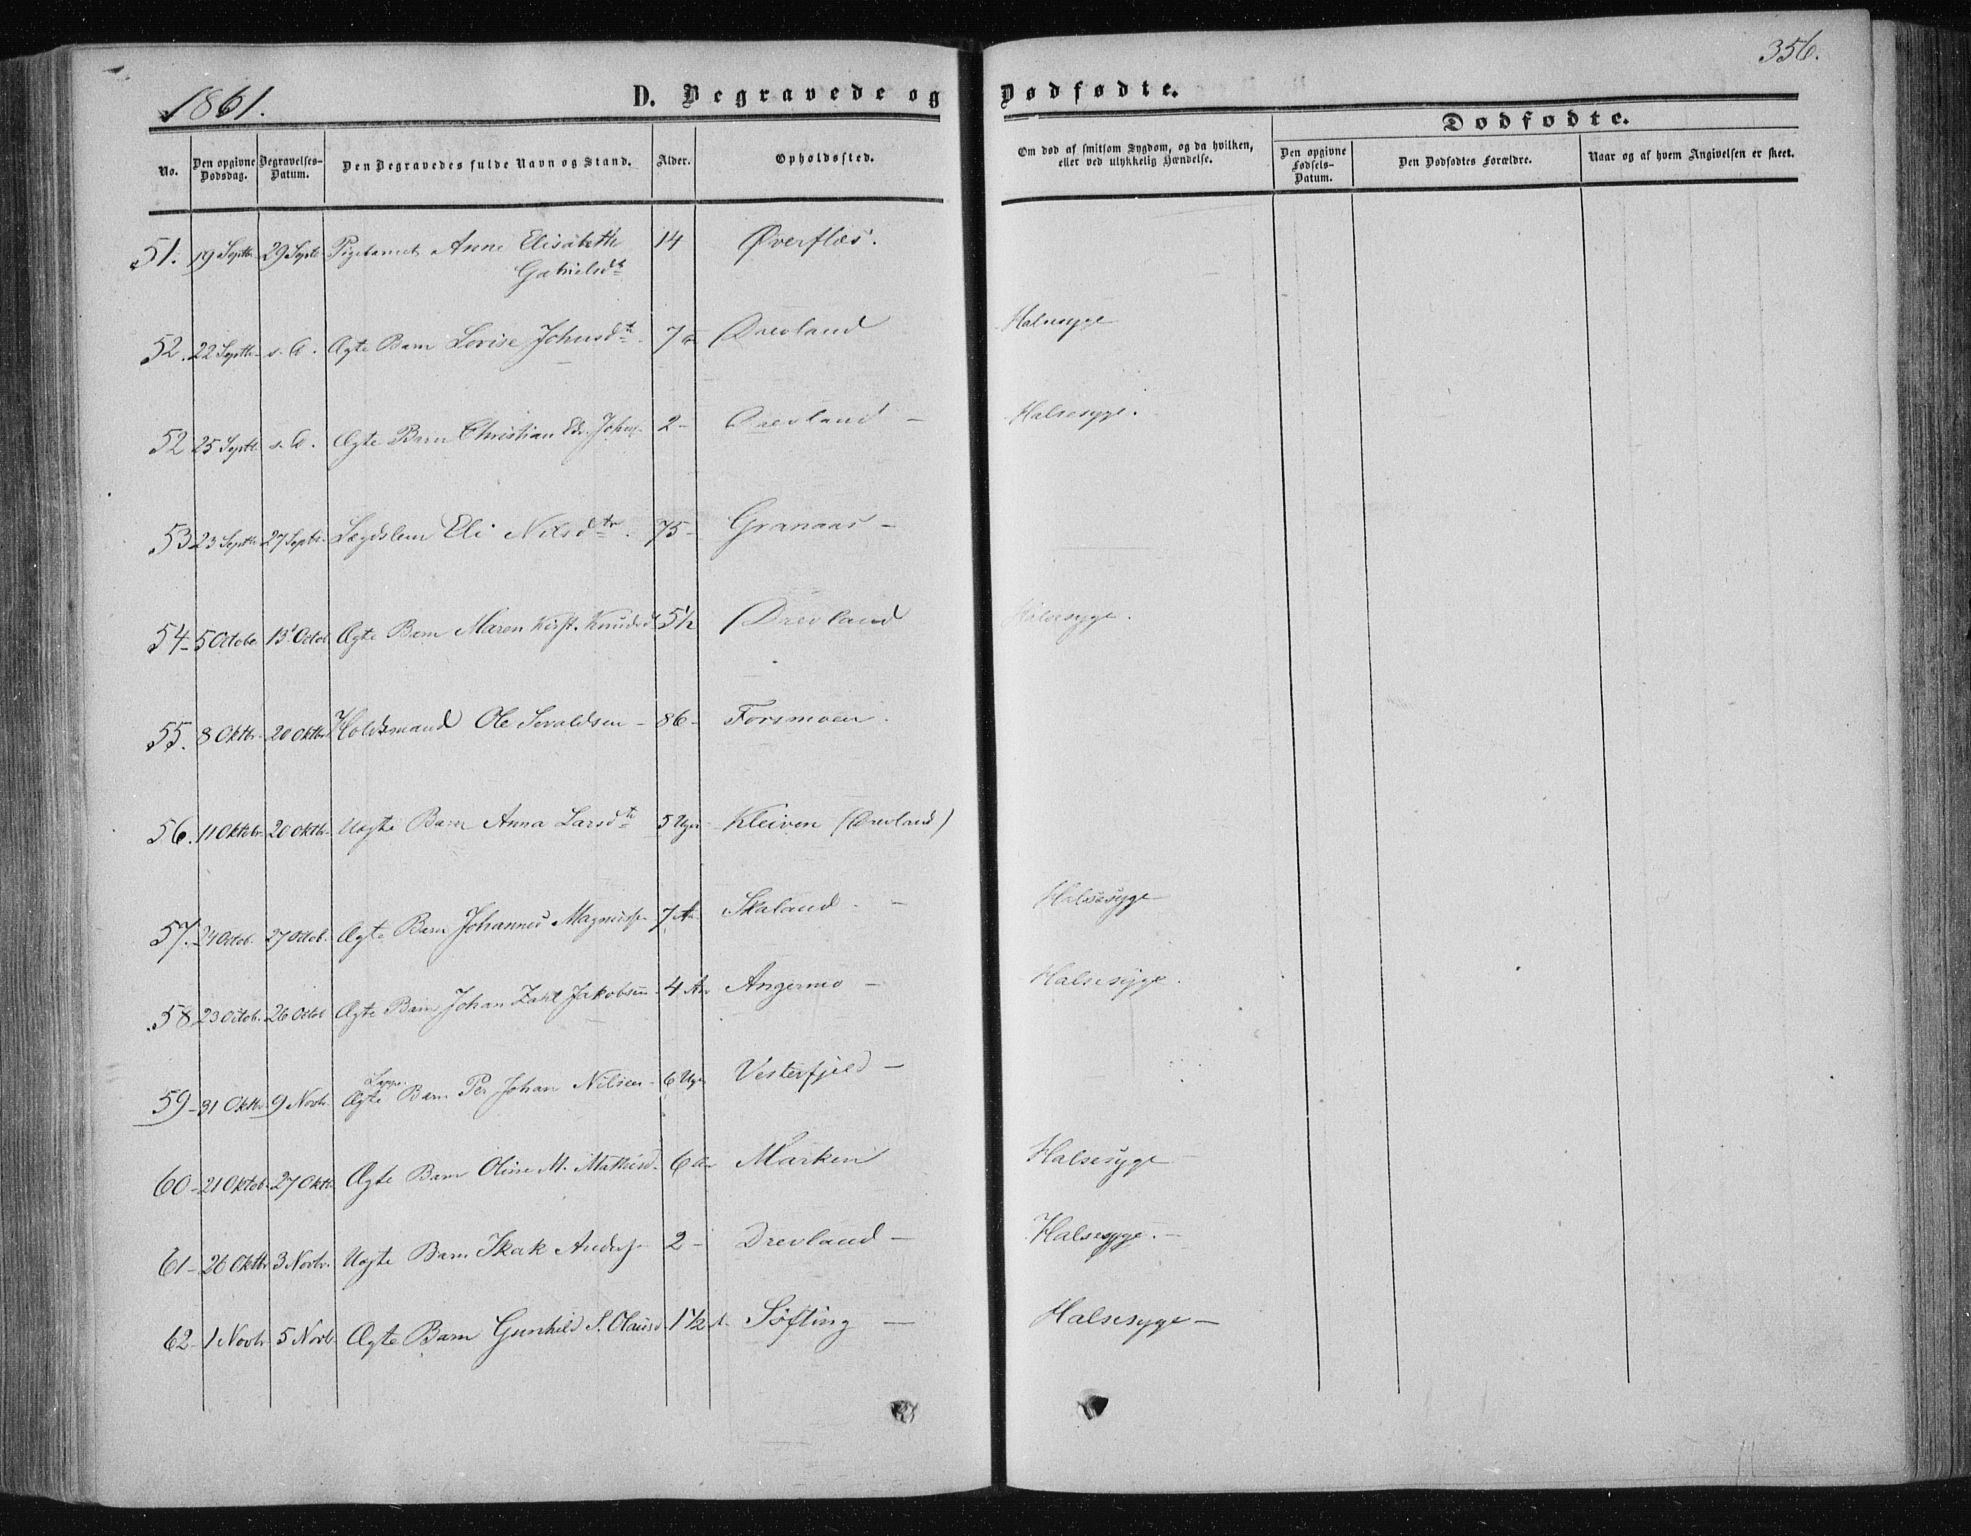 356.
1861.
D. Begravede og Dødfødte.
Dødfødte.
No.
Den opgivne Dødsdag.
Begravelses-Datum.
Den Begravedes fulde Navn og Stand.
Alder.
Opholdssted.
Om død af smitsom Sygdom, og da hvilken, eller ved ulykkelig Hændelse.
Den opgivne Fødsels-Datum.
Den Dødfødtes Forældre.
Naar og af hvem Angivelsen er skeet.
51. 19 Septbr 29 Septr Pigebarnet Anne Elisabeth 14 Øverflæs.
Gabrielsdtr
52. 22 Septbr s. A. Ægte Barn Lovise Johnsdtr 7 Drevland Halsesyge
52 25 Septbr s. A. Ægte Barn Christian Johns. 2 - Drevland - Halsesyge.
53 23 Septbr 27 Septbr. Lægdslem Eli Nilsdtr. 75 - Granaas -
54 - 5 Octobr 13 Octob Ægte Barn Maren Kirst. Knudsd 5½ Drevland Halsesyge.
55. 8 Oktbr. 20 Oktbr Holdsmand Ole Sivaldsen - 86 - Forsmoen.
56. 11 Oktobr. 20 Oktbr. Uægte Barn Anna Larsdtr 5 Uger Kleiven (Drevland)
57. 24 Octob. 27 Octob. Ægte Barn Johannes Magnuss. 7 Aar Skaland - Halsesyge
58 23 Octob. 26 Octob Ægte Barn Johan Zahl Jakobsen 4 Aar Angermo - Halsesyge.
Lappe.
59 - 31 Oktbr. 9 Novbr. Ægte Barn Per Johan Nilsen - 6 Uger Vesterfjeld -
60 - 21 Oktob. 27 Oktb Ægte Barn Oline M. Mathisd. 6 Aar Marken Halsesyge -
61 - 26 Oktbr 3 Novbr. Uægte Barn Isak Anders. 2 - Drevland - Halsesyge. -
62 - 1 Novbr 5 Novb Ægte Barn Gunhild S. Olausd. 1½ A. Søfting - Halsesyge -